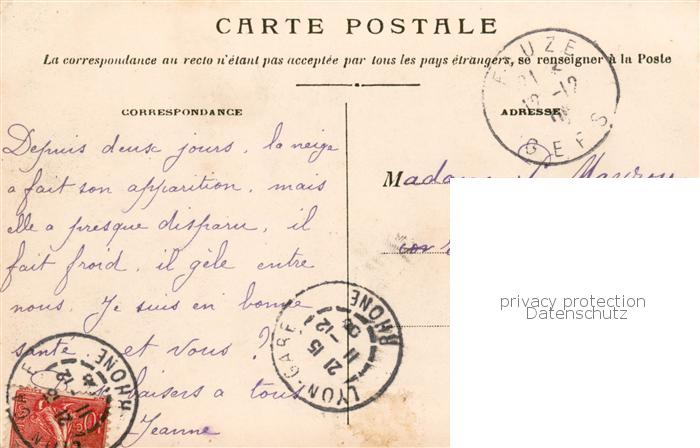 CARTE POSTALE
La correspondance au recto n'étant pas acceptée par tous les pays étrangers, se renseigner à la Poste
CORRESPONDANCE
ADRESSE
Depuis deux jours, la neige
a fait son apparition, mais
elle a presque disparu, il
fait froid, il gèle entre
nous. Je suis en bonne
santé, et vous ?
baisers a tous
Jeanne
Madame
LYON-GARE
RHONE
21 15
11-12
RHONE
GERS
privacy protection
Datenschutz